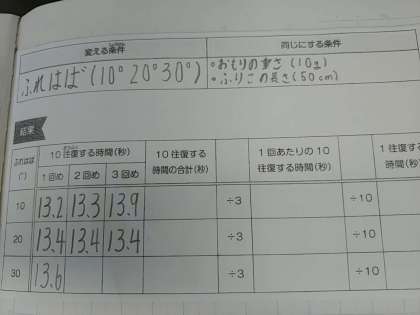 変える条件 同じにする条件
ふれはば(10° 20° 30°) ・おもりの重さ(10g)
・ふりこの長さ(50cm)
結果
ふれはば(°) 10往復する時間(秒) 10往復する時間の合計(秒) 1回あたりの10往復する時間(秒) 1往復する時間(
1回め 2回め 3回め
10 13.2 13.3 13.9 ÷3 ÷10
20 13.4 13.4 13.4 ÷3 ÷10
30 13.6 ÷3 ÷10